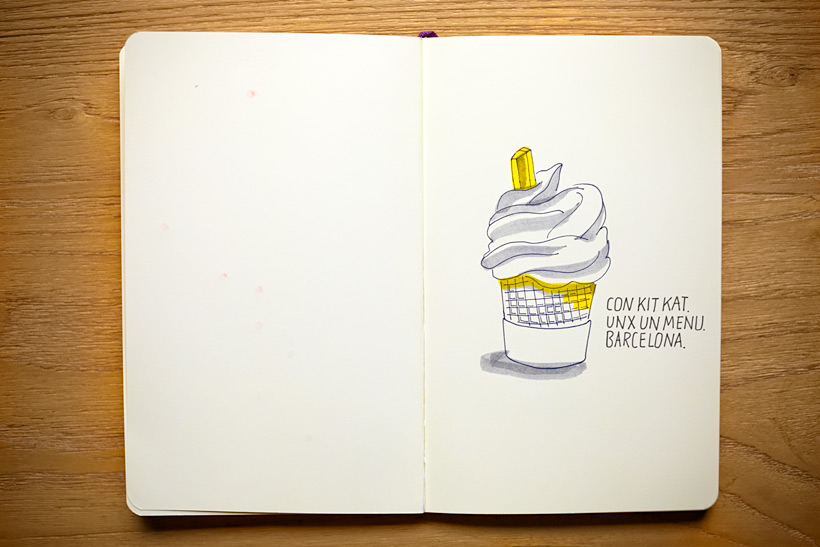 CON KIT KAT.
UNX UN MENU.
BARCELONA.